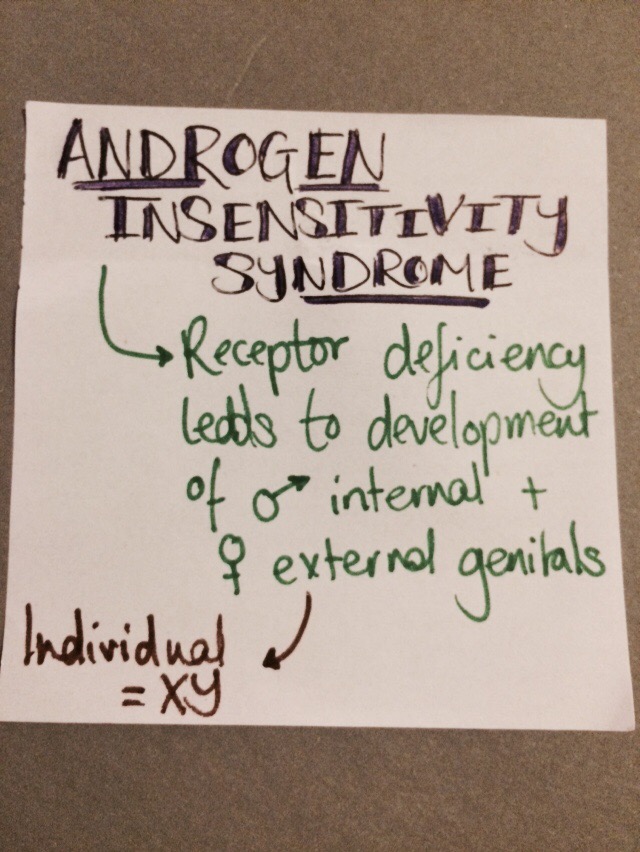 ANDROGEN
INSENSITIVITY
SYNDROME
→ Receptor deficiency
leads to development
of ♂ internal +
♀ external genitals
Individual
= XY